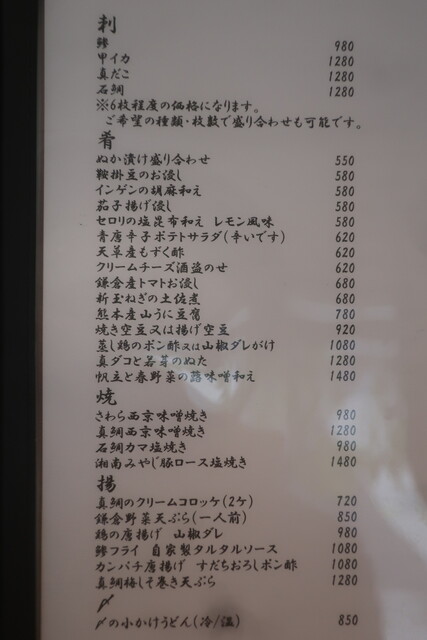 刺
鯵 980
甲イカ 1280
真だこ 1280
石鯛 1280
※6枚程度の価格になります。
ご希望の種類・枚数で盛り合わせも可能です。
肴
ぬか漬け盛り合わせ 550
鞍掛豆のお浸し 580
インゲンの胡麻和え 580
茄子揚げ浸し 580
セロリの塩昆布和え レモン風味 580
青唐辛子ポテトサラダ(辛いです) 620
天草産もずく酢 620
クリームチーズ酒盗のせ 620
鎌倉産トマトお浸し 680
新玉ねぎの土佐煮 680
熊本産山うに豆腐 780
焼き空豆又は揚げ空豆 920
蒸し鶏のポン酢又は山椒ダレがけ 1080
真ダコと若芽のぬた 1280
帆立と春野菜の蕗味噌和え 1480
焼
さわら西京味噌焼き 980
真鯛西京味噌焼き 1280
石鯛カマ塩焼き 980
湘南みやじ豚ロース塩焼き 1480
揚
真鯛のクリームコロッケ(2ケ) 720
鎌倉野菜天ぷら(一人前) 850
鶏の唐揚げ 山椒ダレ 980
鯵フライ 自家製タルタルソース 1080
カンパチ唐揚げ すだちおろしポン酢 1080
真鯛梅しそ巻き天ぷら 1280
〆
〆の小かけうどん(冷/温) 850